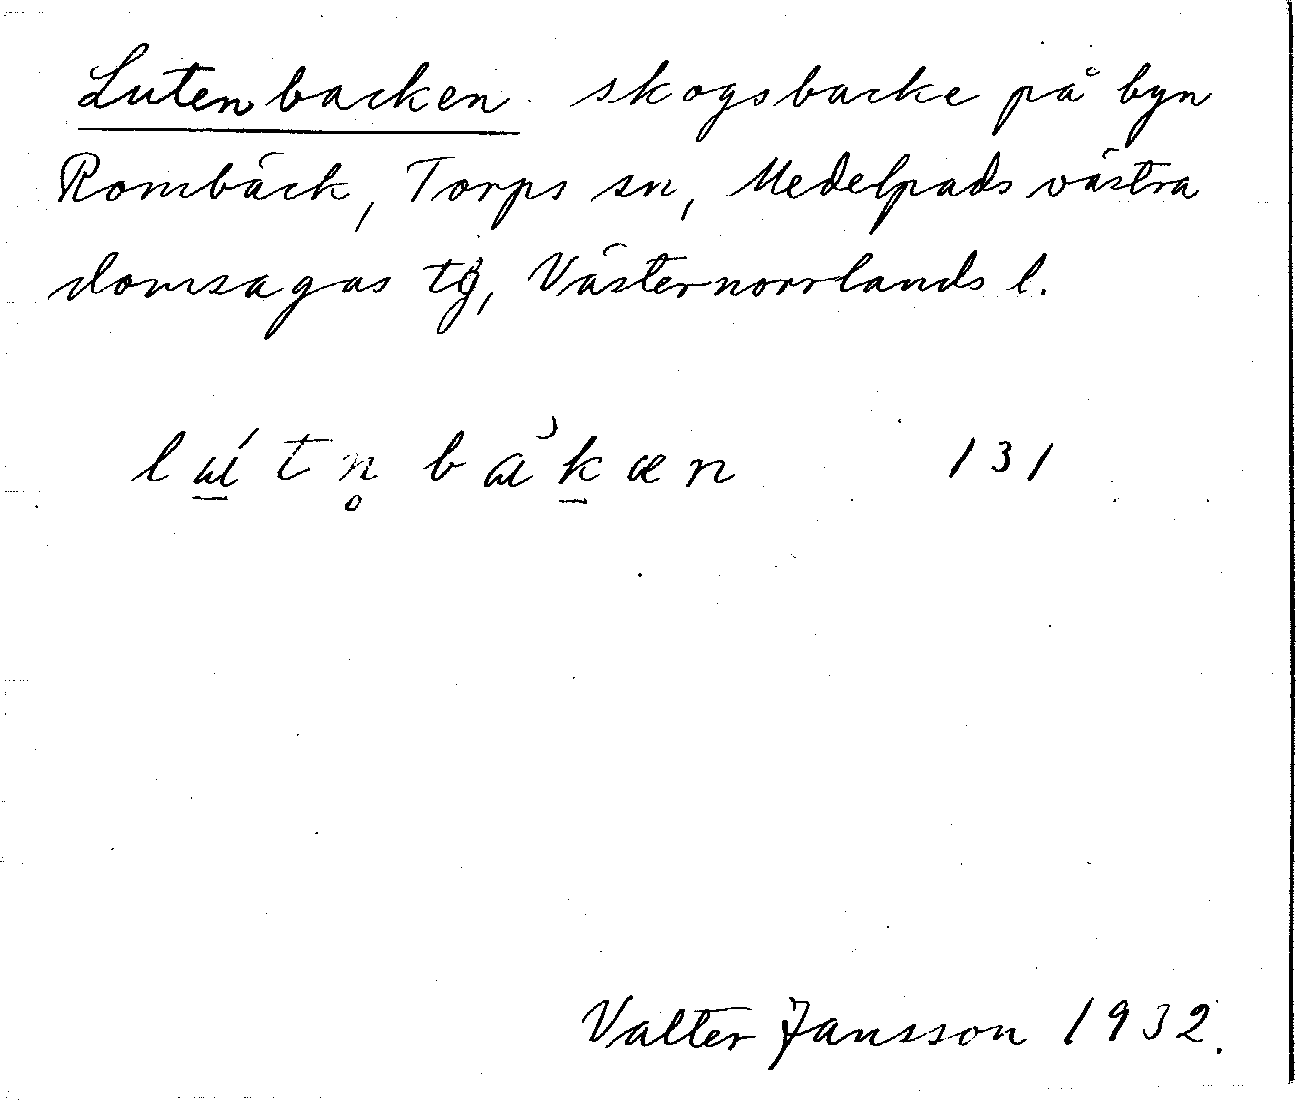 Lutenbacken skogsbacke på byn
Rombäck, Torps sn, Medelpads västra
domsagas tg, Västernorrlands l.
lú̲tn̥bak̲æn 131
Valter Jansson 1932.